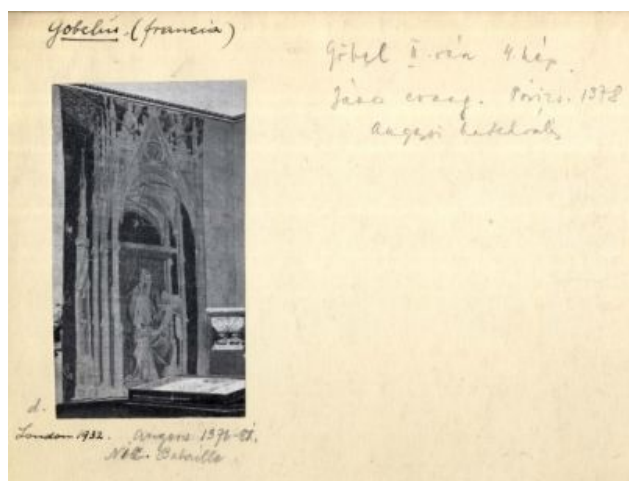 Gobelin. (francia)
Göbel II. rész 4. kép.
János evang. Párizs. 1378
Angersi katedrális
d.
London 1932. Angers 1378-
Nic. Bataille